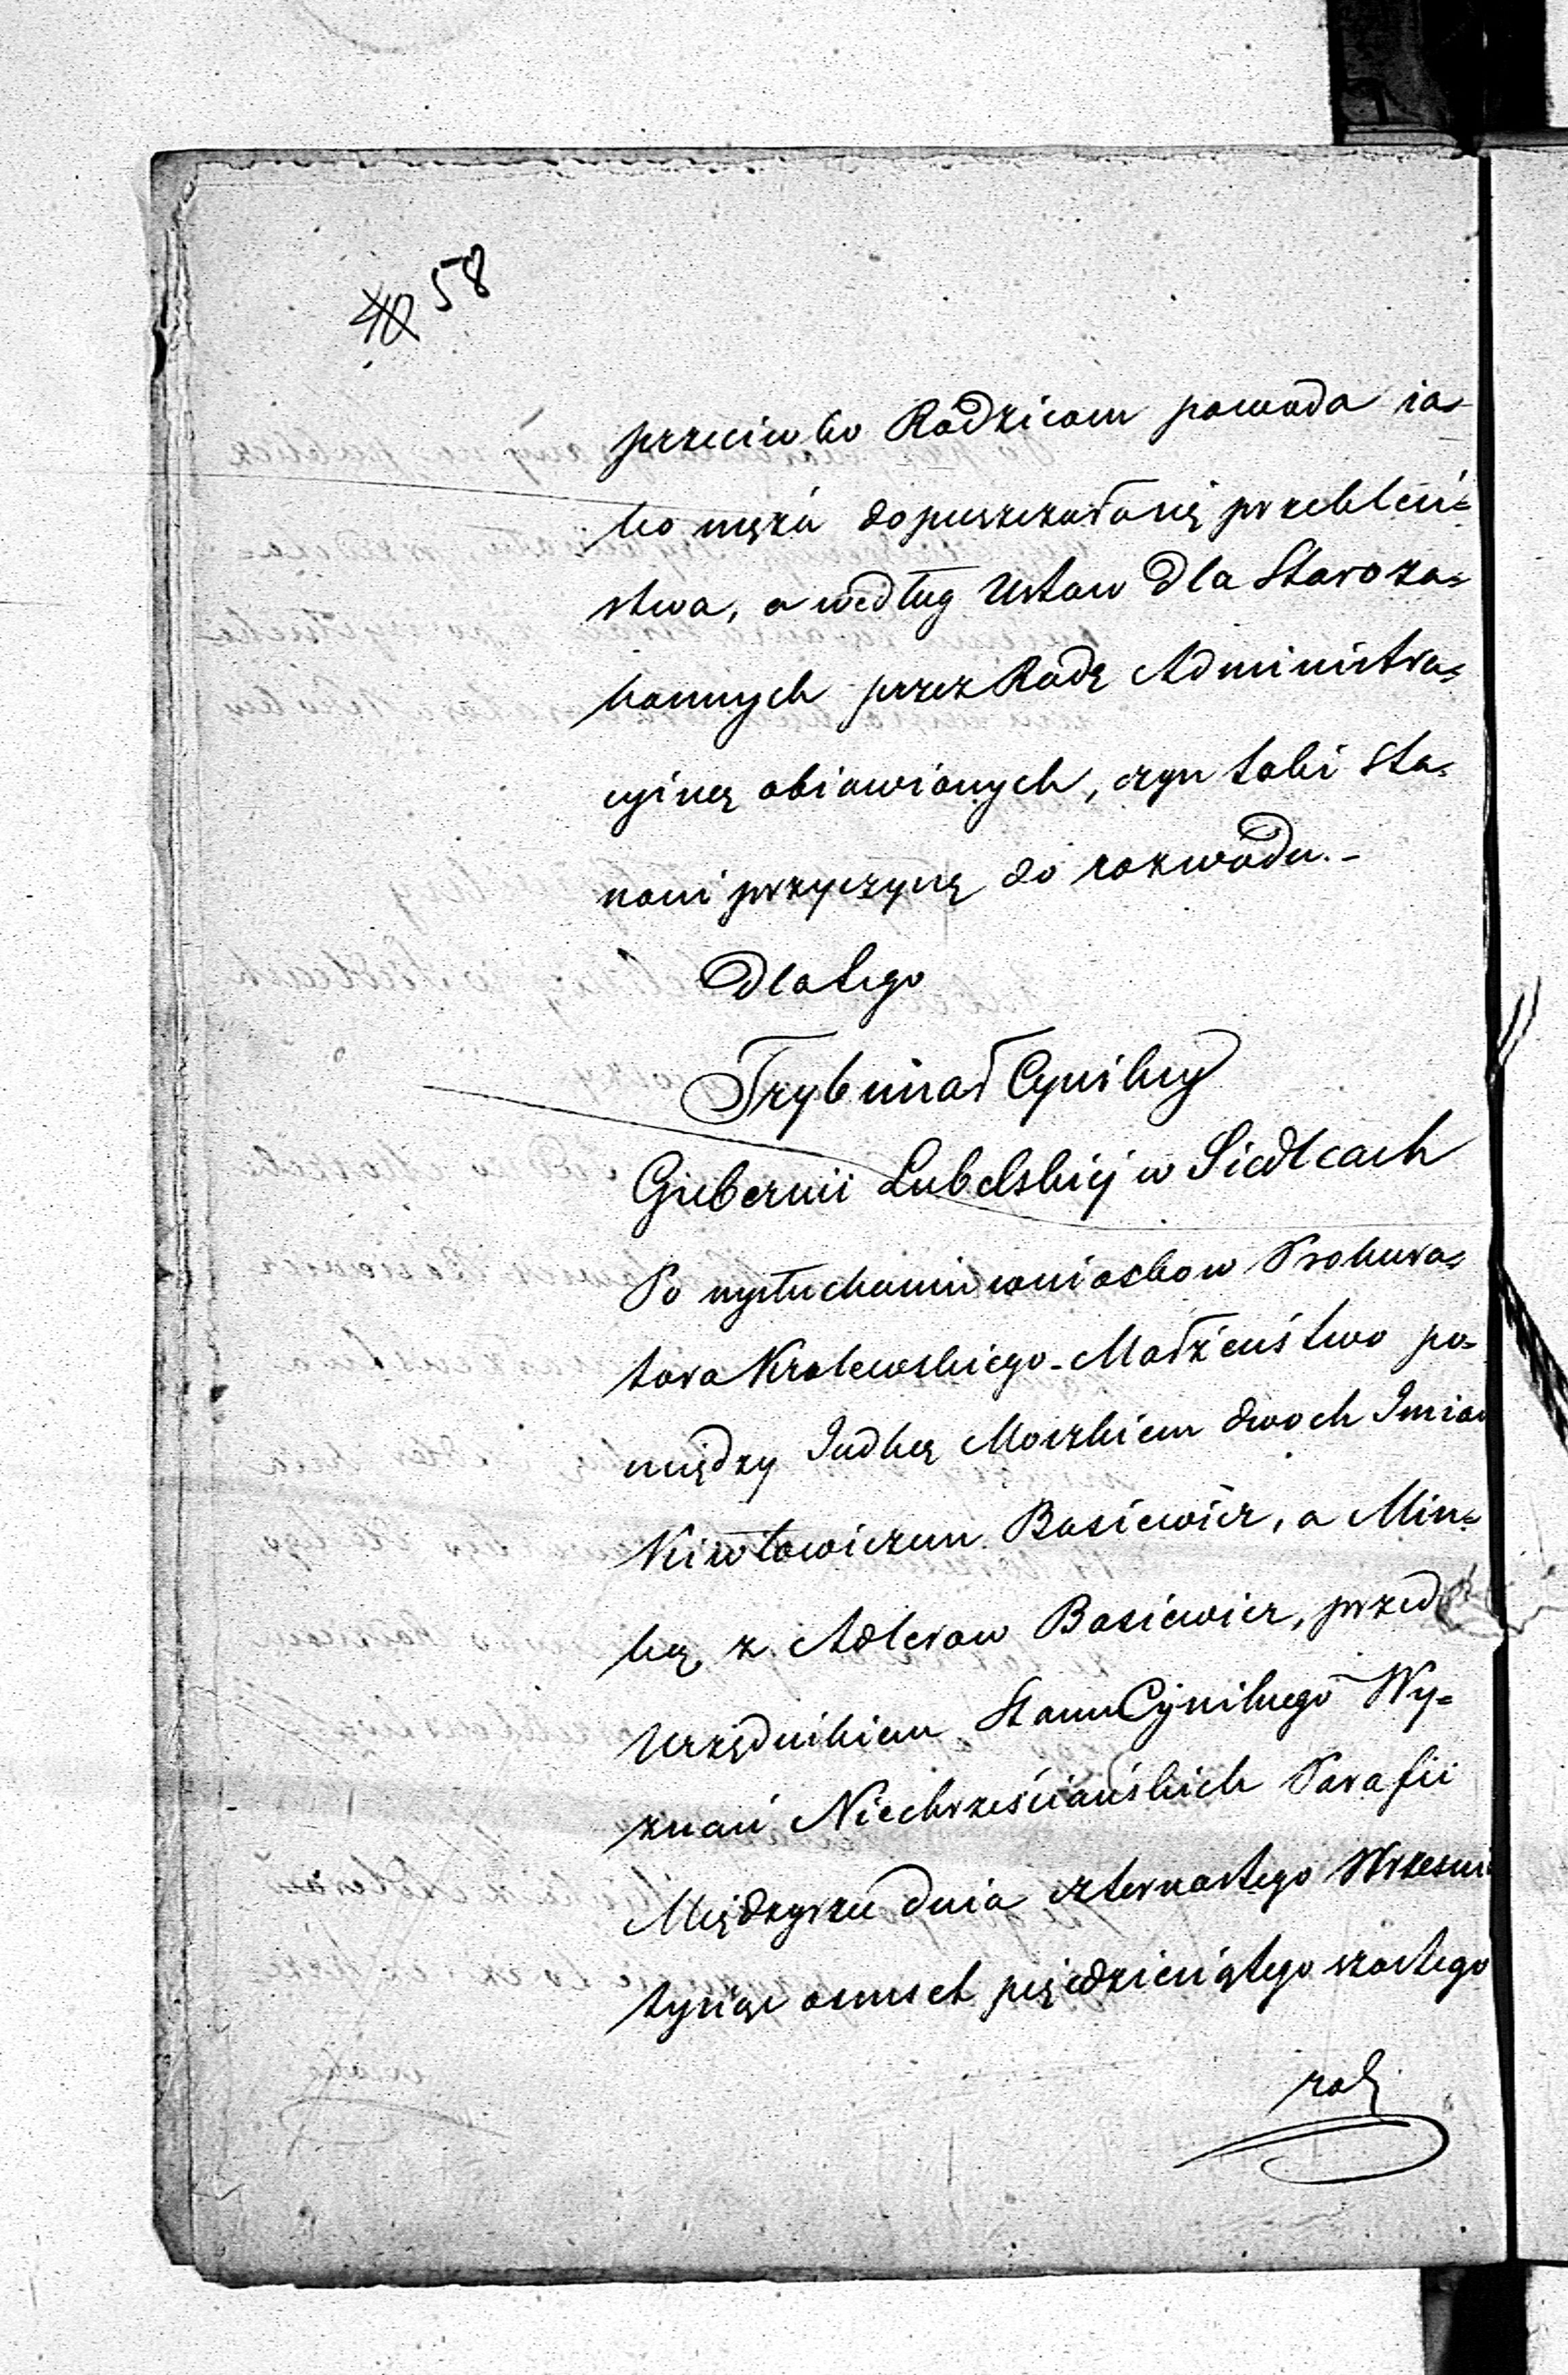 58
przeciwko Rodzicom powoda ia-
ko męża dopuszczała się przekleń=
stwa, a według Ustaw dla Staroza=
konnych przez Radę Administra=
cyiną obiawionych, czyn taki sta=
nowi przyczynę do rozwodu. -
Dlatego
Trybunał Cywilny
Gubernii Lubelskiej w Siedlcach
Po wysłuchaniu wniosków Prokura=
tora Królewskiego - Małżeństwo po=
między Judką Moszkiem dwoch Imion
Kiwłowiczem Basiewicz, a Min=
ką z Adlerow Basiewicz, przed
Urzędnikiem Stanu Cywilnego Wy=
znań Niechrześciańskich Parafii
Międzyrzec dnia czternastego Wrześni
tysiąc osmset pięćdziesiątego szóstego